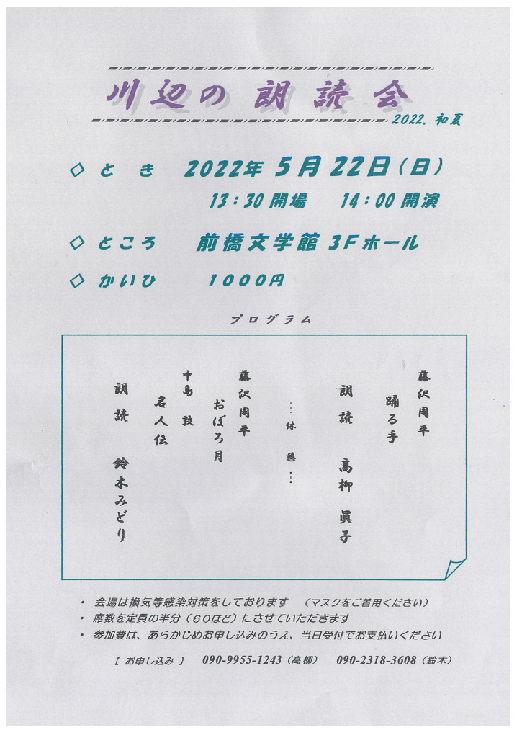 川辺の 朗読会
2022. 初夏
◇ とき 2022年 5月 22日(日)
13:30 開場 14:00 開演
◇ ところ 前橋文学館 3Fホール
◇ かいひ 1000円
プログラム
藤沢周平
踊る手
朗読 高柳 眞子
…休憩…
藤沢周平
おぼろ月
中島 敦
名人伝
朗読 鈴木みどり
・ 会場は換気等感染対策をしております (マスクをご着用ください)
・ 席数を定員の半分(60ほど)にさせていただきます
・ 参加費は、あらかじめお申し込みのうえ、当日受付でお支払いください
[ お申し込み ] 090-9955-1243 (高柳) 090-2318-3608 (鈴木)